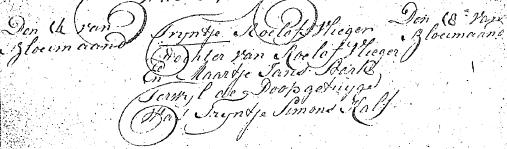 Den 14 van
Bloeimaand
Tryntje Roelofs Vlieger
Dochter van Roelof Vlieger
En Maartje Jans Sterk
Terwyl de Doopgetuyge
Was Tryntje Simons Kalf
Den 18 van
Bloeimaand